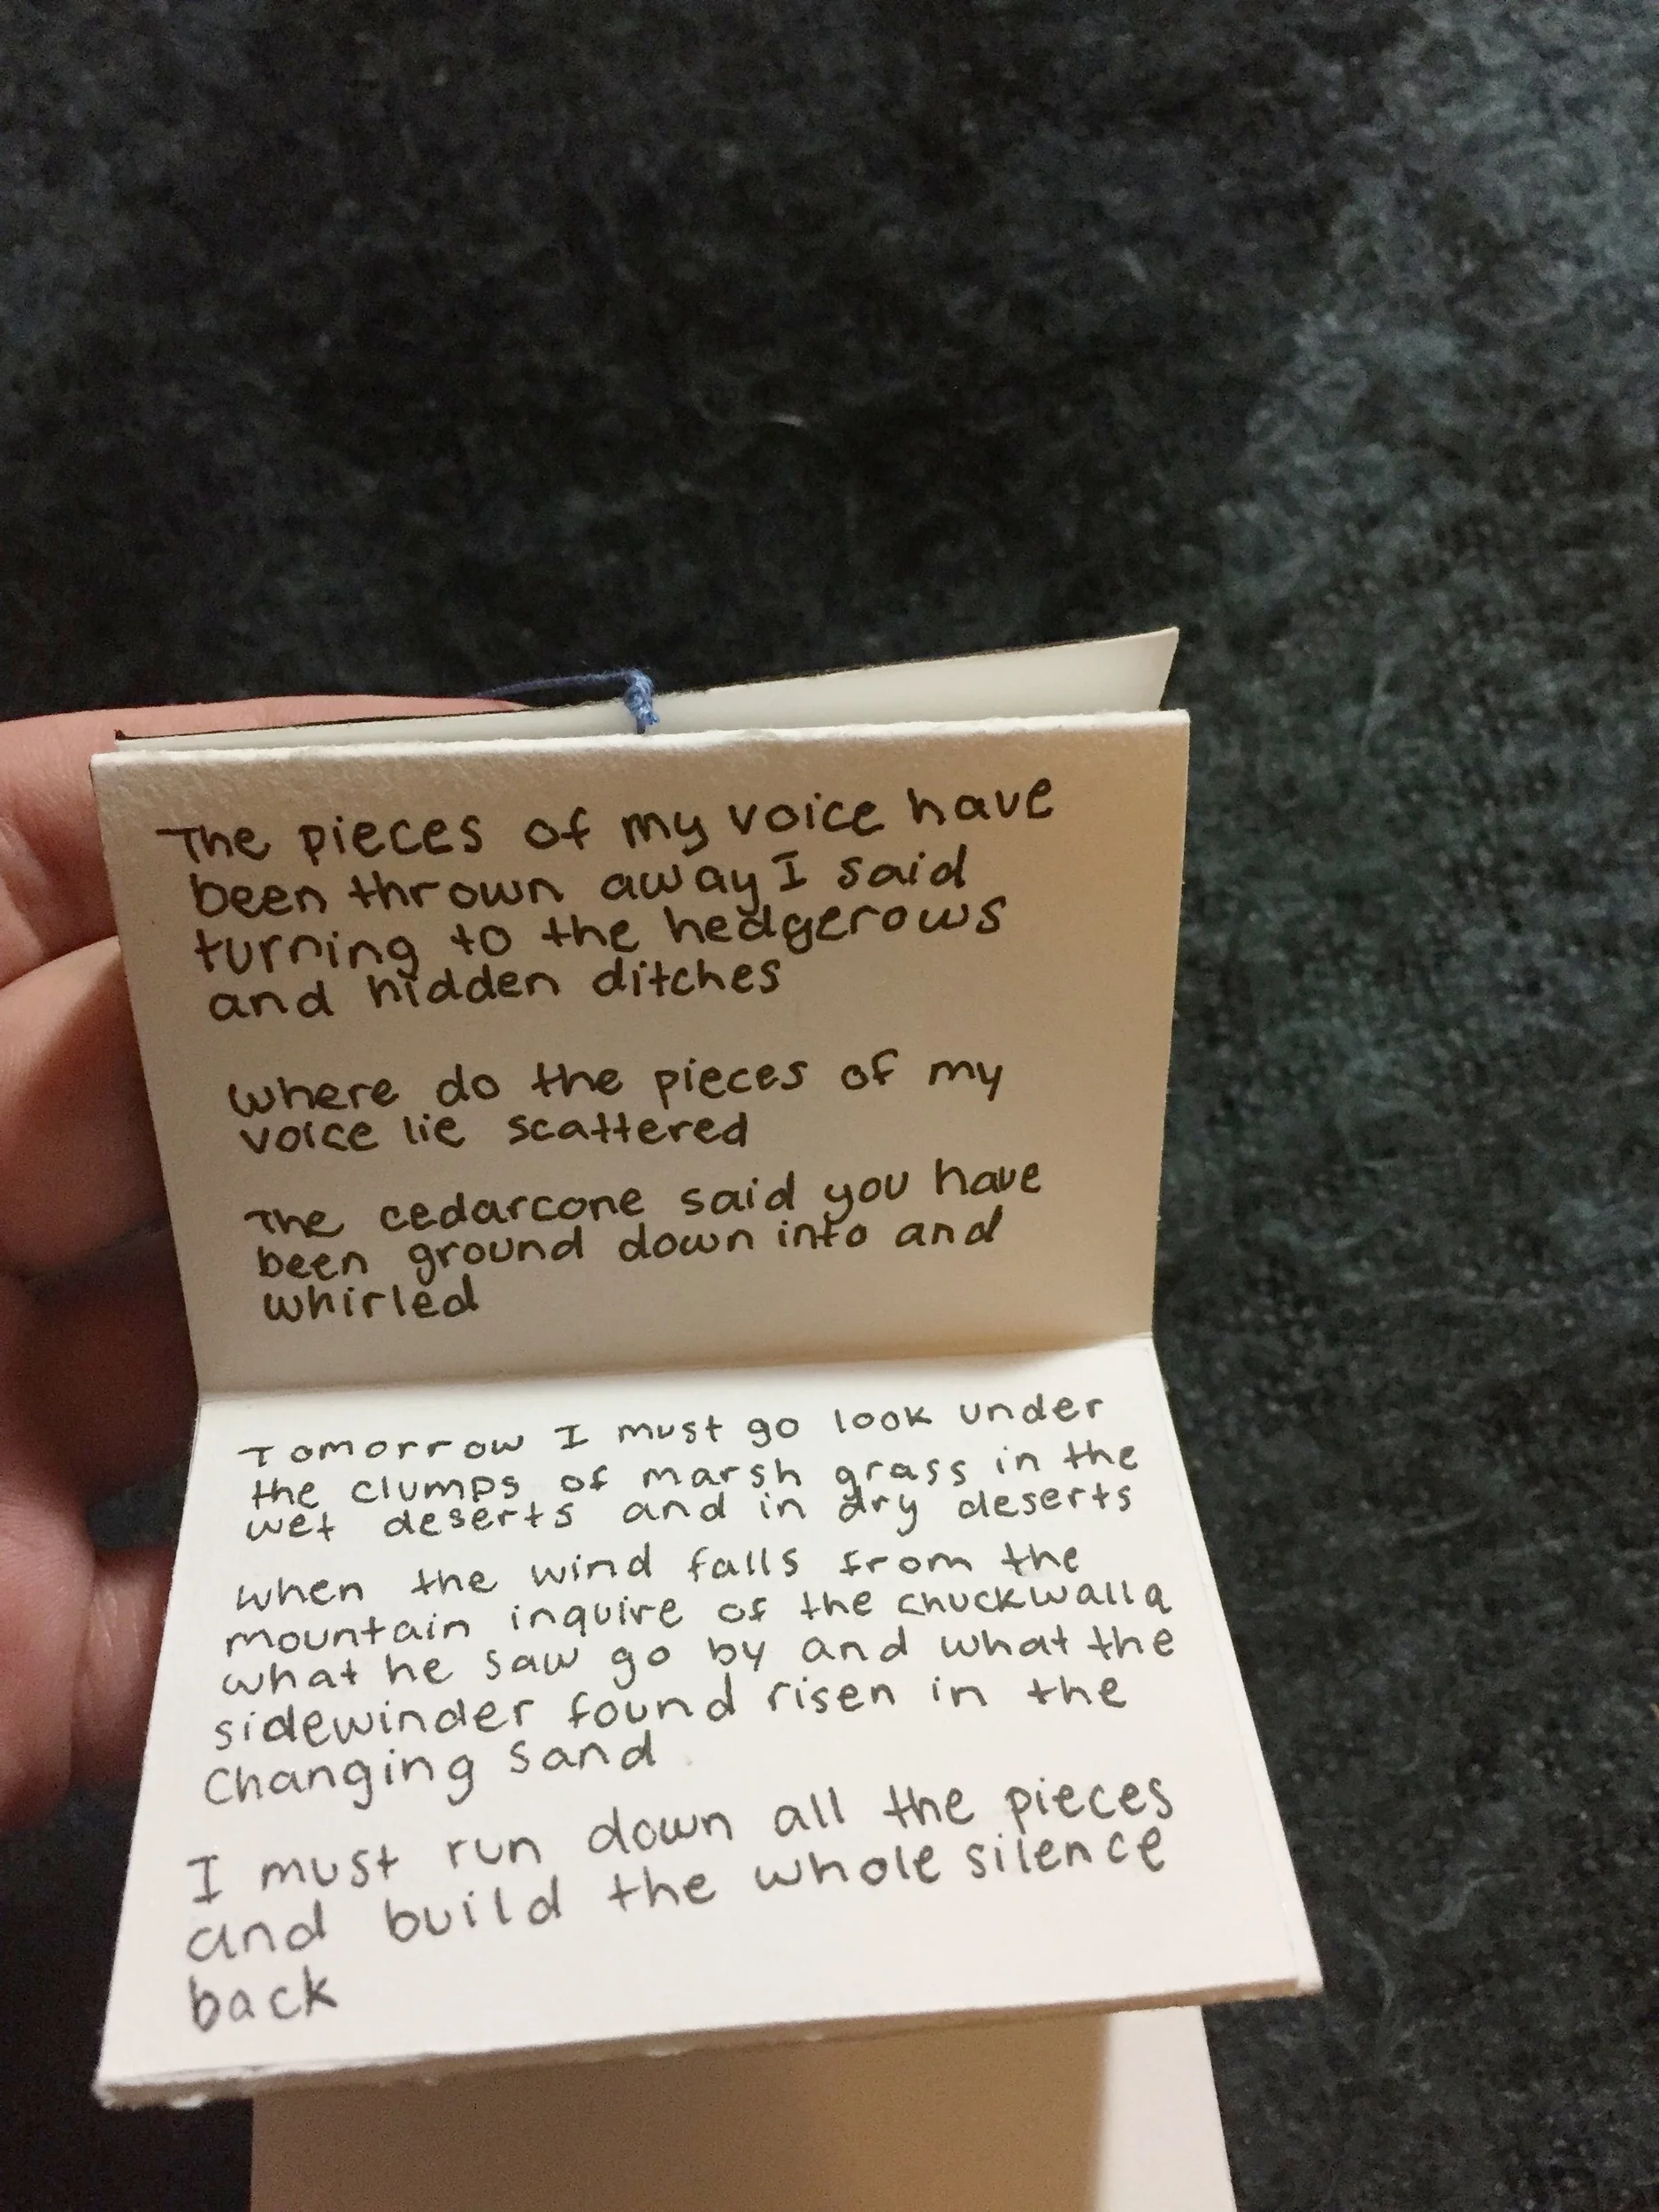 The pieces of my voice have
been thrown away I said
turning to the hedgerows
and hidden ditches
where do the pieces of my
voice lie scattered
The cedarcone said you have
been ground down into and
whirled
Tomorrow I must go look under
the clumps of marsh grass in the
wet deserts and in dry deserts
when the wind falls from the
mountain inquire of the chuckwalla
what he saw go by and what the
sidewinder found risen in the
changing sand
I must run down all the pieces
and build the whole silence
back